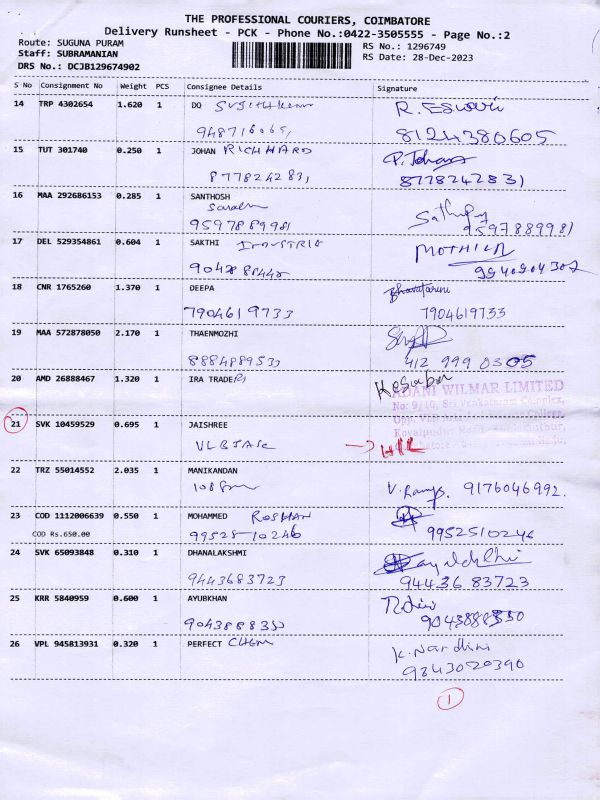 THE PROFESSIONAL COURIERS, COIMBATORE
Delivery Runsheet - PCK - Phone No.:0422-3505555 - Page No.:2
Route: SUGUNA PURAM
Staff: SUBRAMANIAN
DRS No.: DCJB129674902
RS No.: 1296749
RS Date: 28-Dec-2023
S No Consignment No Weight PCS Consignee Details Signature
14 TRP 4302654 1.620 1 DO R. Eswari
8124380605
15 TUT 301740 0.250 1 JOHAN RICHHARD
8778242831 8778242831
16 MAA 292686153 0.285 1 SANTHOSH
9597889981 9597889981
17 DEL 529354861 0.604 1 SAKTHI
9940904307
18 CNR 1765260 1.370 1 DEEPA Bhavatarini
7904619733 7904619733
19 MAA 572878050 2.170 1 THAENMOZHI
8884889533 412 999 0305
20 AMD 26888467 1.320 1 IRA TRADERS
ADANI WILMAR LIMITED
No: 9/10, Sri Venkatesa Complex,
21 SVK 10459529 0.695 1 JAISHREE
22 TRZ 55014552 2.035 1 MANIKANDAN
9176046992.
23 COD 1112006639 0.550 1 MOHAMMED ROSHAN
COD Rs.650.00 99528-10246 9952510246
24 SVK 65093848 0.310 1 DHANALAKSHMI
9443683723 9443683723
25 KRR 5840959 0.600 1 AYUBKHAN
9043888350 9043888350
26 VPL 945813931 0.320 1 PERFECT CHEM K. Nardini
9843020390
1